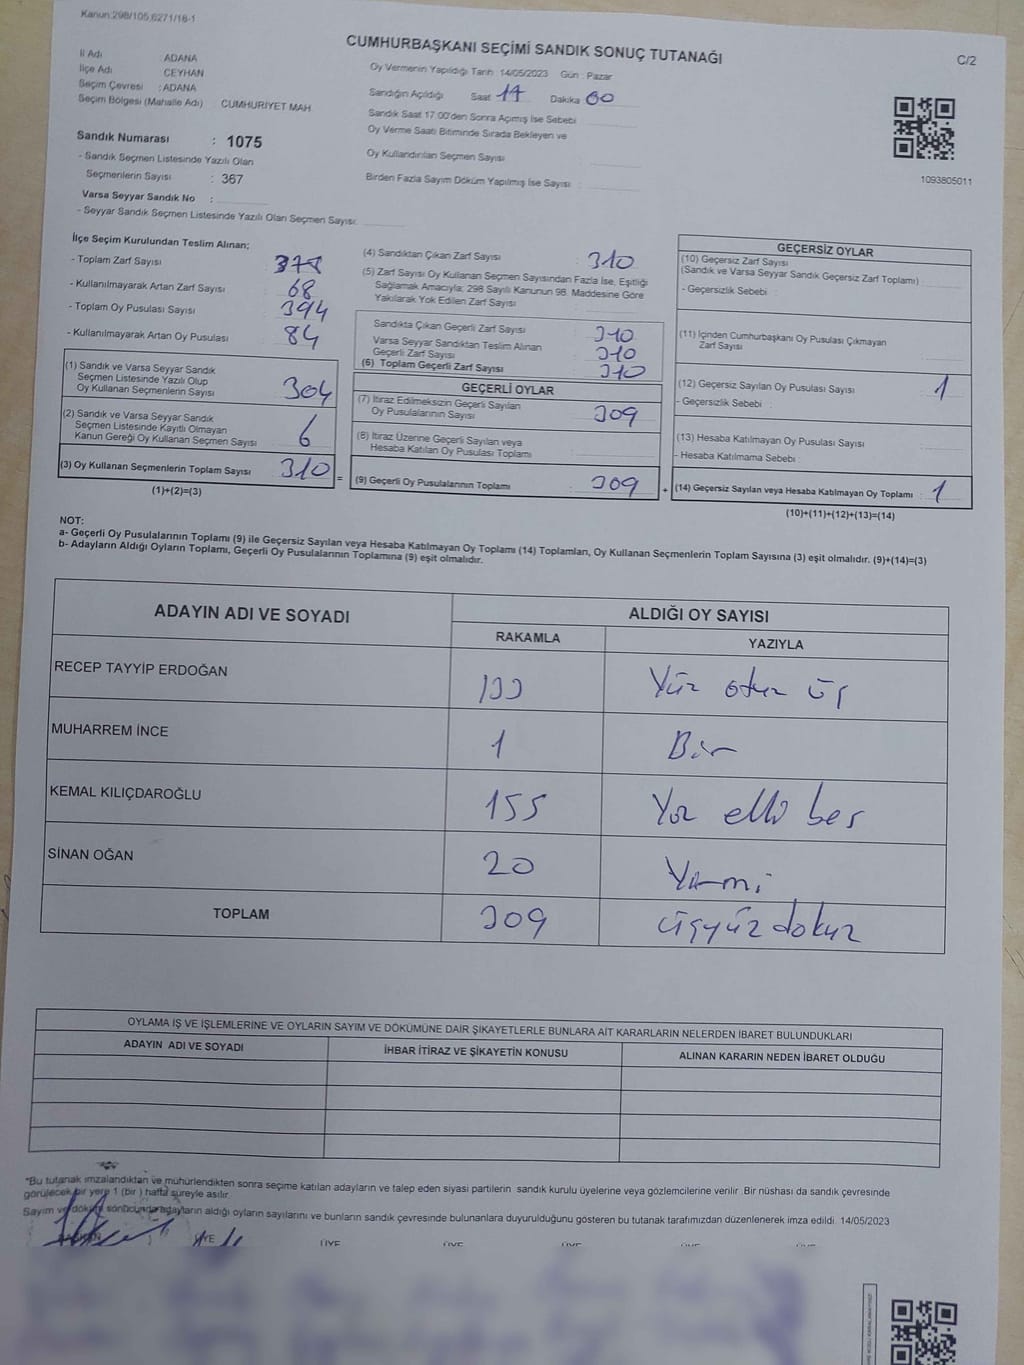 Kanun:298/105,6271/18-1
CUMHURBAŞKANI SEÇİMİ SANDIK SONUÇ TUTANAĞI
C/2
İl Adı : ADANA
İlçe Adı : CEYHAN
Seçim Çevresi : ADANA
Seçim Bölgesi (Mahalle Adı) CUMHURİYET MAH
Oy Vermenin Yapıldığı Tarih 14/05/2023 Gün : Pazar
Sandığın Açıldığı Saat 17 Dakika 00
Sandık Saat 17.00'den Sonra Açımış İse Sebebi
Oy Verme Saati Bitiminde Sırada Bekleyen ve
Oy Kullandırılan Seçmen Sayısı :
Birden Fazla Sayım Döküm Yapılmış İse Sayısı :
1093805011
Sandık Numarası : 1075
- Sandık Seçmen Listesinde Yazılı Olan
Seçmenlerin Sayısı : 367
Varsa Seyyar Sandık No :
- Seyyar Sandık Seçmen Listesinde Yazılı Olan Seçmen Sayısı:
İlçe Seçim Kurulundan Teslim Alınan;
- Toplam Zarf Sayısı 378
- Kullanılmayarak Artan Zarf Sayısı 68
- Toplam Oy Pusulası Sayısı 394
- Kullanılmayarak Artan Oy Pusulası 84
(1) Sandık ve Varsa Seyyar Sandık
Seçmen Listesinde Yazılı Olup
Oy Kullanan Seçmenlerin Sayısı 304
(2) Sandık ve Varsa Seyyar Sandık
Seçmen Listesinde Kayıtlı Olmayan
Kanun Gereği Oy Kullanan Seçmen Sayısı 6
(3) Oy Kullanan Seçmenlerin Toplam Sayısı 310 =
(1)+(2)=(3)
(4) Sandıktan Çıkan Zarf Sayısı : 310
(5) Zarf Sayısı Oy Kullanan Seçmen Sayısından Fazla İse, Eşitliği
Sağlamak Amacıyla; 298 Sayılı Kanunun 98. Maddesine Göre
Yakılarak Yok Edilen Zarf Sayısı
Sandıkta Çıkan Geçerli Zarf Sayısı : 310
Varsa Seyyar Sandıktan Teslim Alınan
Geçerli Zarf Sayısı : 310
(6) Toplam Geçerli Zarf Sayısı : 310
GEÇERLİ OYLAR
(7) İtiraz Edilmeksizin Geçerli Sayılan
Oy Pusulalarının Sayısı : 309
(8) İtiraz Üzerine Geçerli Sayılan veya
Hesaba Katılan Oy Pusulası Toplamı :
(9) Geçerli Oy Pusulalarının Toplamı : 309 +
GEÇERSİZ OYLAR
(10) Geçersiz Zarf Sayısı
(Sandık ve Varsa Seyyar Sandık Geçersiz Zarf Toplamı)
- Geçersizlik Sebebi :
(11) İçinden Cumhurbaşkanı Oy Pusulası Çıkmayan
Zarf Sayısı
(12) Geçersiz Sayılan Oy Pusulası Sayısı : 1
- Geçersizlik Sebebi :
(13) Hesaba Katılmayan Oy Pusulası Sayısı
- Hesaba Katılmama Sebebi :
(14) Geçersiz Sayılan veya Hesaba Katılmayan Oy Toplamı : 1
(10)+(11)+(12)+(13)=(14)
NOT:
a- Geçerli Oy Pusulalarının Toplamı (9) ile Geçersiz Sayılan veya Hesaba Katılmayan Oy Toplamı (14) Toplamları, Oy Kullanan Seçmenlerin Toplam Sayısına (3) eşit olmalıdır. (9)+(14)=(3)
b- Adayların Aldığı Oyların Toplamı, Geçerli Oy Pusulalarının Toplamına (9) eşit olmalıdır.
ADAYIN ADI VE SOYADI ALDIĞI OY SAYISI
RAKAMLA YAZIYLA
RECEP TAYYİP ERDOĞAN 133 Yüz otuz üç
MUHARREM İNCE 1 Bir
KEMAL KILIÇDAROĞLU 155 Yüz elli beş
SİNAN OĞAN 20 Yirmi
TOPLAM 309 üçyüz dokuz
OYLAMA İŞ VE İŞLEMLERİNE VE OYLARIN SAYIM VE DÖKÜMÜNE DAİR ŞİKAYETLERLE BUNLARA AİT KARARLARIN NELERDEN İBARET BULUNDUKLARI
ADAYIN ADI VE SOYADI İHBAR İTİRAZ VE ŞİKAYETİN KONUSU ALINAN KARARIN NEDEN İBARET OLDUĞU
"Bu tutanak imzalandıktan ve mühürlendikten sonra seçime katılan adayların ve talep eden siyasi partilerin sandık kurulu üyelerine veya gözlemcilerine verilir. Bir nüshası da sandık çevresinde
görülecek bir yere 1 (bir) hafta süreyle asılır.
Sayım ve döküm sonucunda adayların aldığı oyların sayılarını ve bunların sandık çevresinde bulunanlara duyurulduğunu gösteren bu tutanak tarafımızdan düzenlenerek imza edildi. 14/05/2023
BAŞKAN ÜYE ÜYE ÜYE ÜYE ÜYE ÜYE